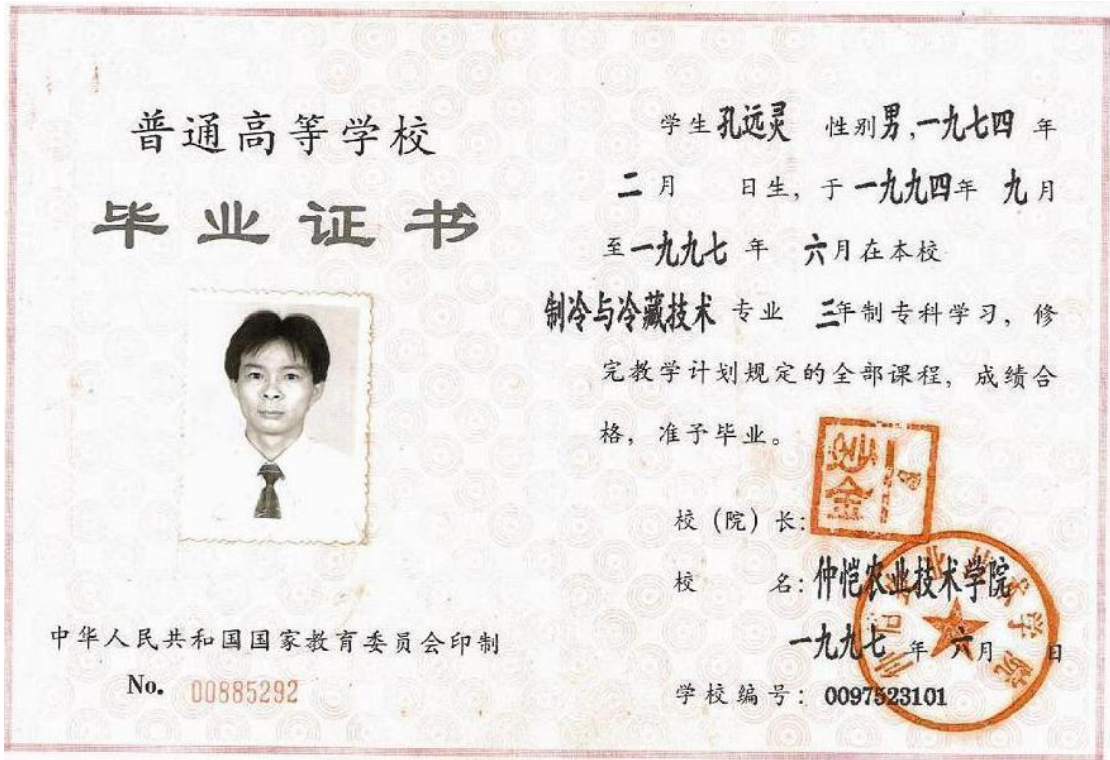 普通高等学校
毕业证书
中华人民共和国国家教育委员会印制
No. 00885292
学生孔远灵 性别男,一九七四 年
二月 日生, 于一九九四年 九月
至一九九七 年 六月在本校
制冷与冷藏技术 专业 三年制专科学习, 修
完教学计划规定的全部课程, 成绩合
格, 准予毕业。
校(院)长:
校 名: 仲恺农业技术学院
一九九七 年 六月 日
学校编号: 0097523101